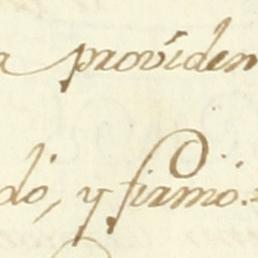 a providen
do, y firmó.=